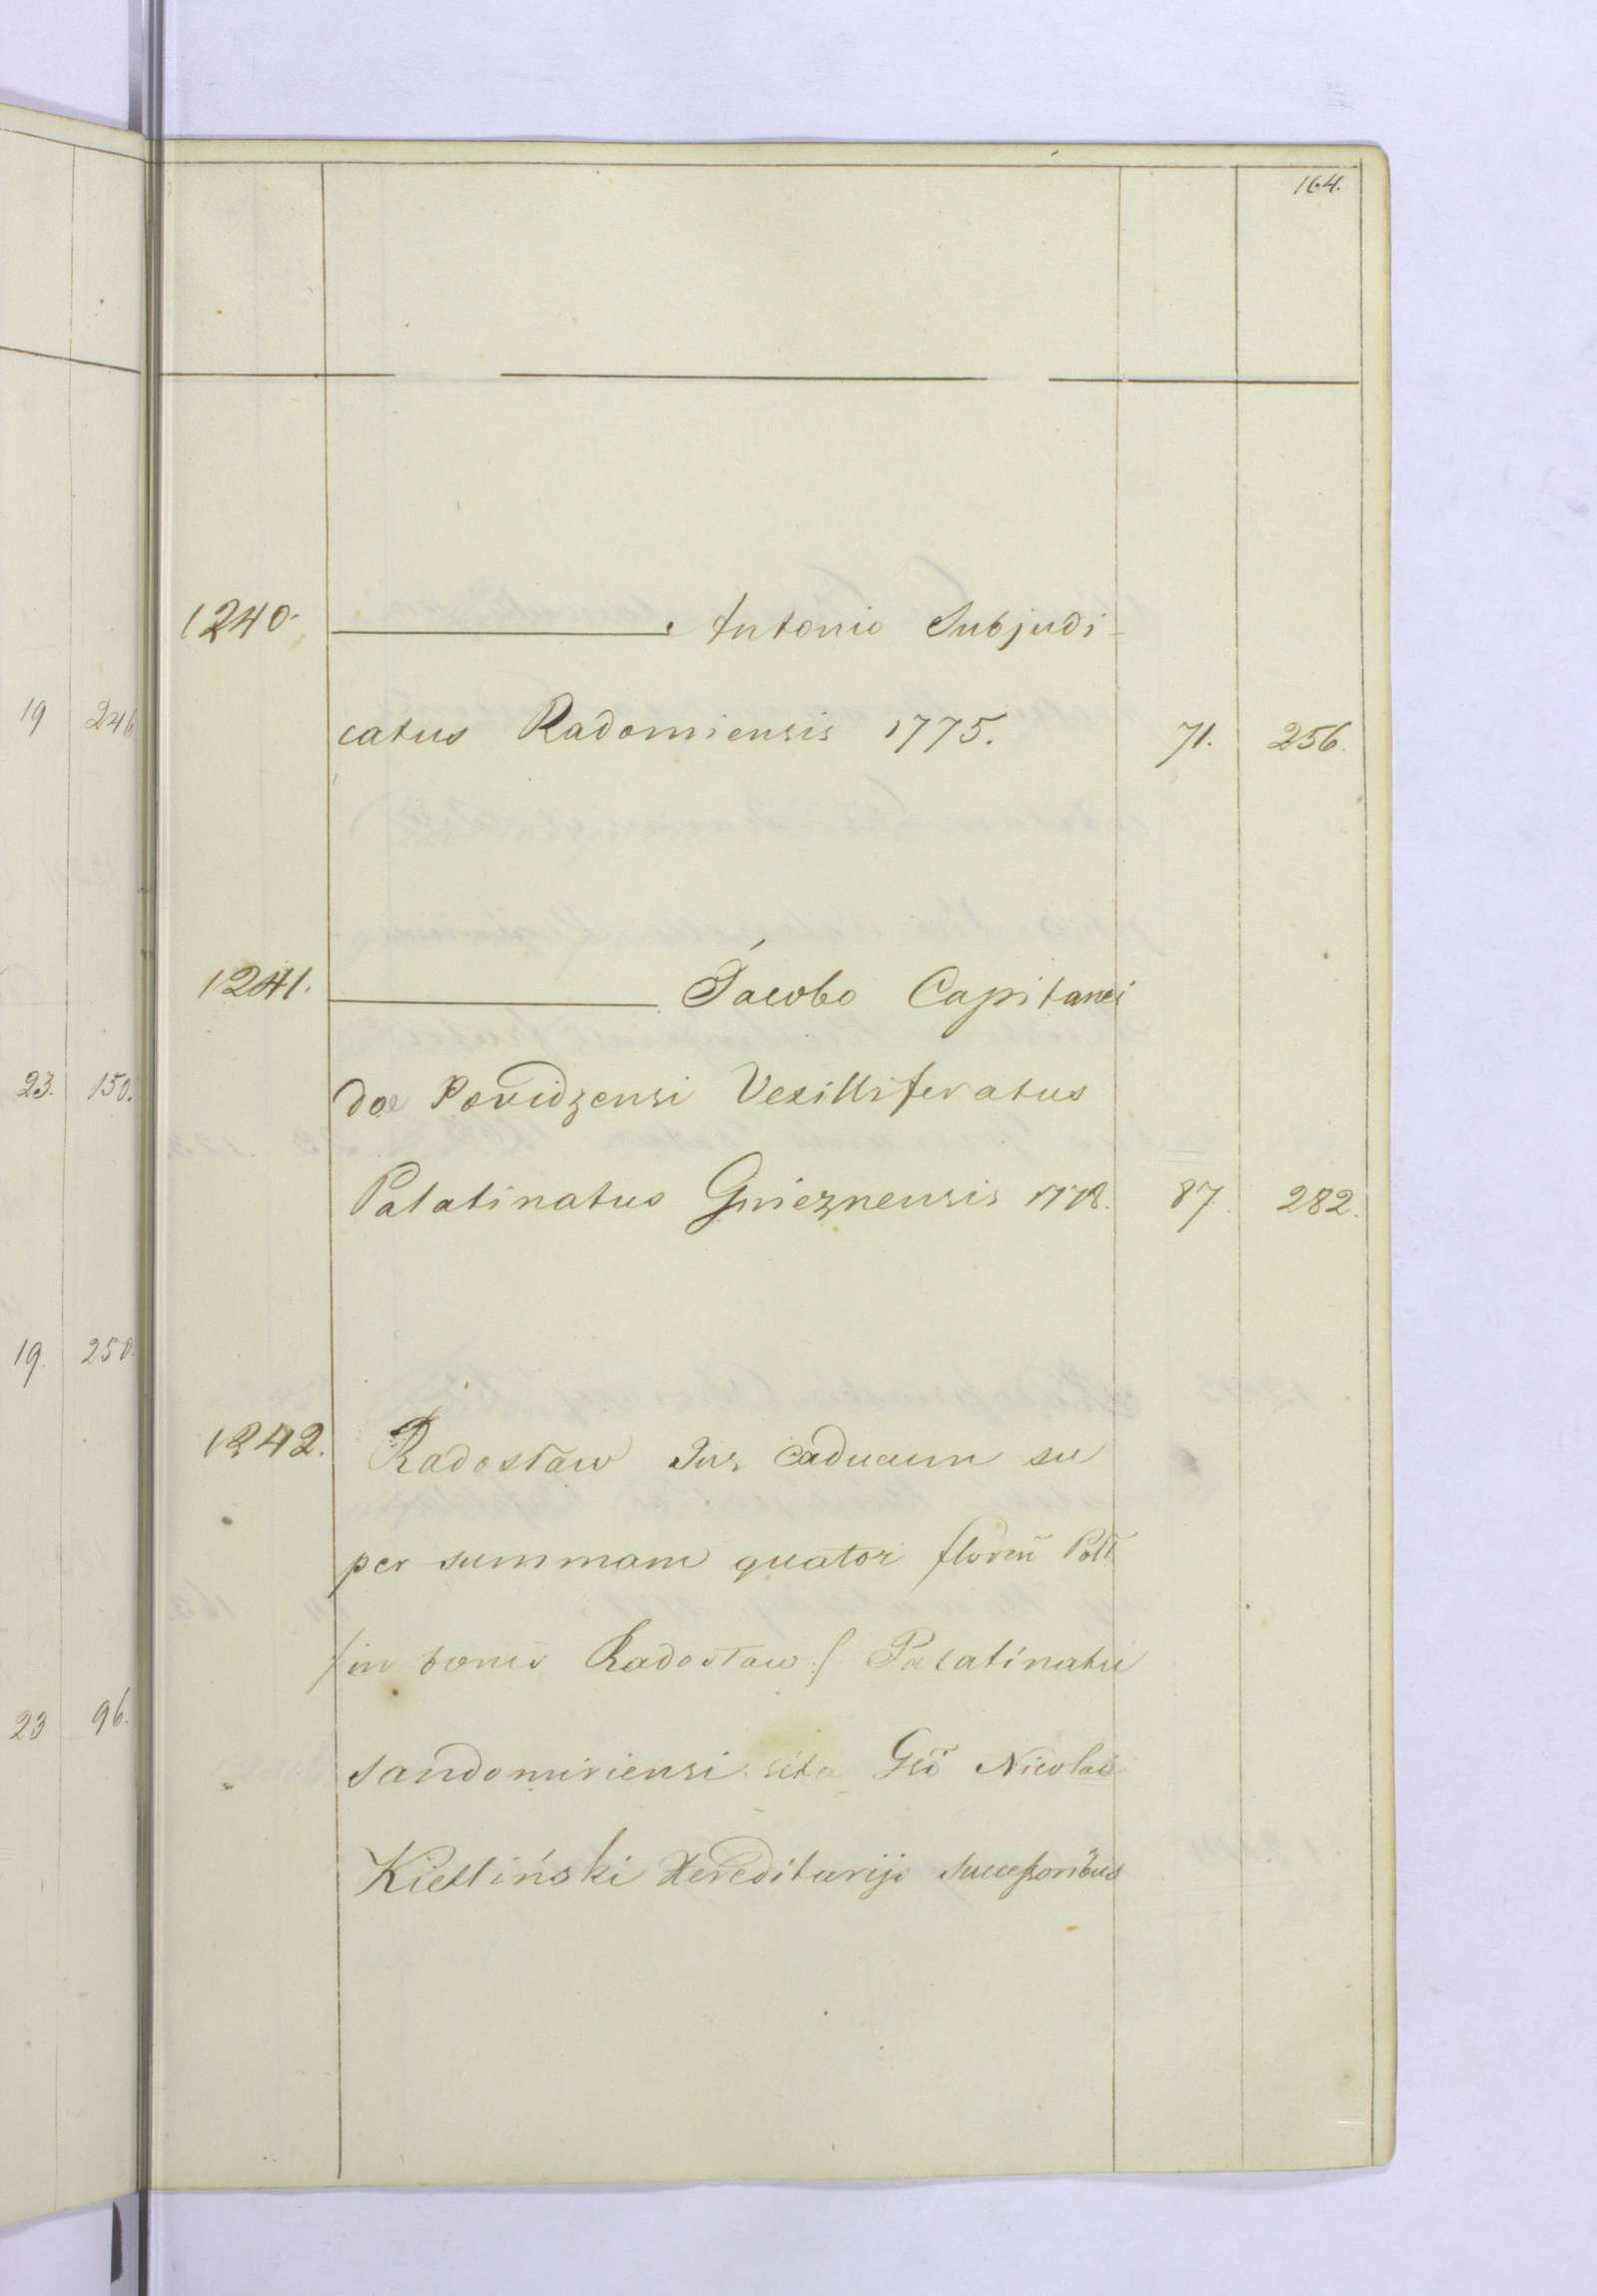 164.
1240. ———. Antonio Subjudi-
catus Radomiensis 1775. 71. 256.
1241. ——— Jacobo Capitanei
do Povidzensi Vexilliferatus
Palatinatus Gnieznensis 1778. 87. 282.
1242. Radostaw Jus caducum su
per summam quator floreñ Poll
/in bonis Radostaw/ Palatinatu
Sandomiriensi sita Gsõ Nicolai
Kietliński Hereditarijs Successoribus
19 246
23. 150.
19. 250.
23 96.